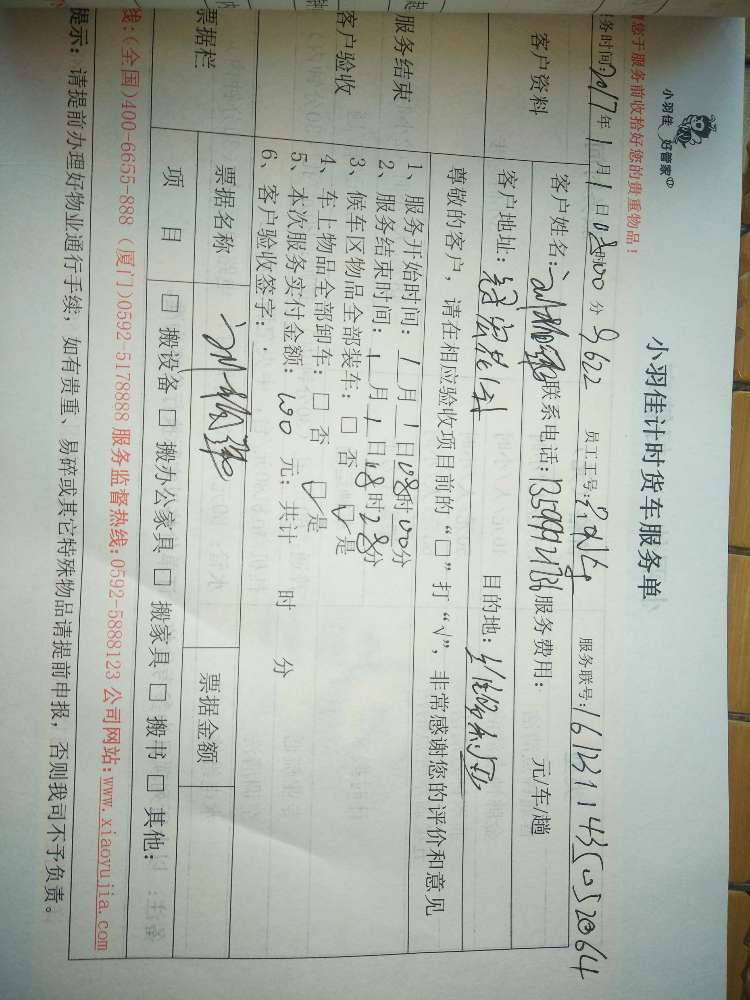 小羽佳 好管家
小羽佳计时货车服务单
您于服务前收拾好您的贵重物品!
务时间:2017年1月1日08时00分 员工工号: 服务联号:
客户资料
客户姓名: 联系电话: 服务费用: 元/车/趟
客户地址: 目的地:
尊敬的客户,请在相应验收项目前的“□”打“√”,非常感谢您的评价和意见
服务结束
客户验收
1、服务开始时间:1月1日08时00分
2、服务结束时间:1月1日08时28分
3、候车区物品全部装车:□否 □是
4、车上物品全部卸车:□否 □是
5、本次服务实付金额:100元;共计 时 分
6、客户验收签字:
票据栏
票据名称 票据金额
项 目 □搬设备 □搬办公家具 □搬家具 □搬书 □其他:
线:(全国)400-6655-888(厦门)0592-5178888 服务监督热线:0592-5888123 公司网站:www.xiaoyujia.com
提示:请提前办理好物业通行手续,如有贵重、易碎或其它特殊物品请提前申报,否则我司不予负责。